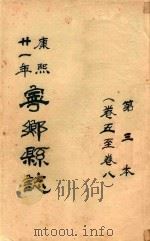 第三本
（卷五至卷八）
康熙
廿一年
寧鄉縣誌